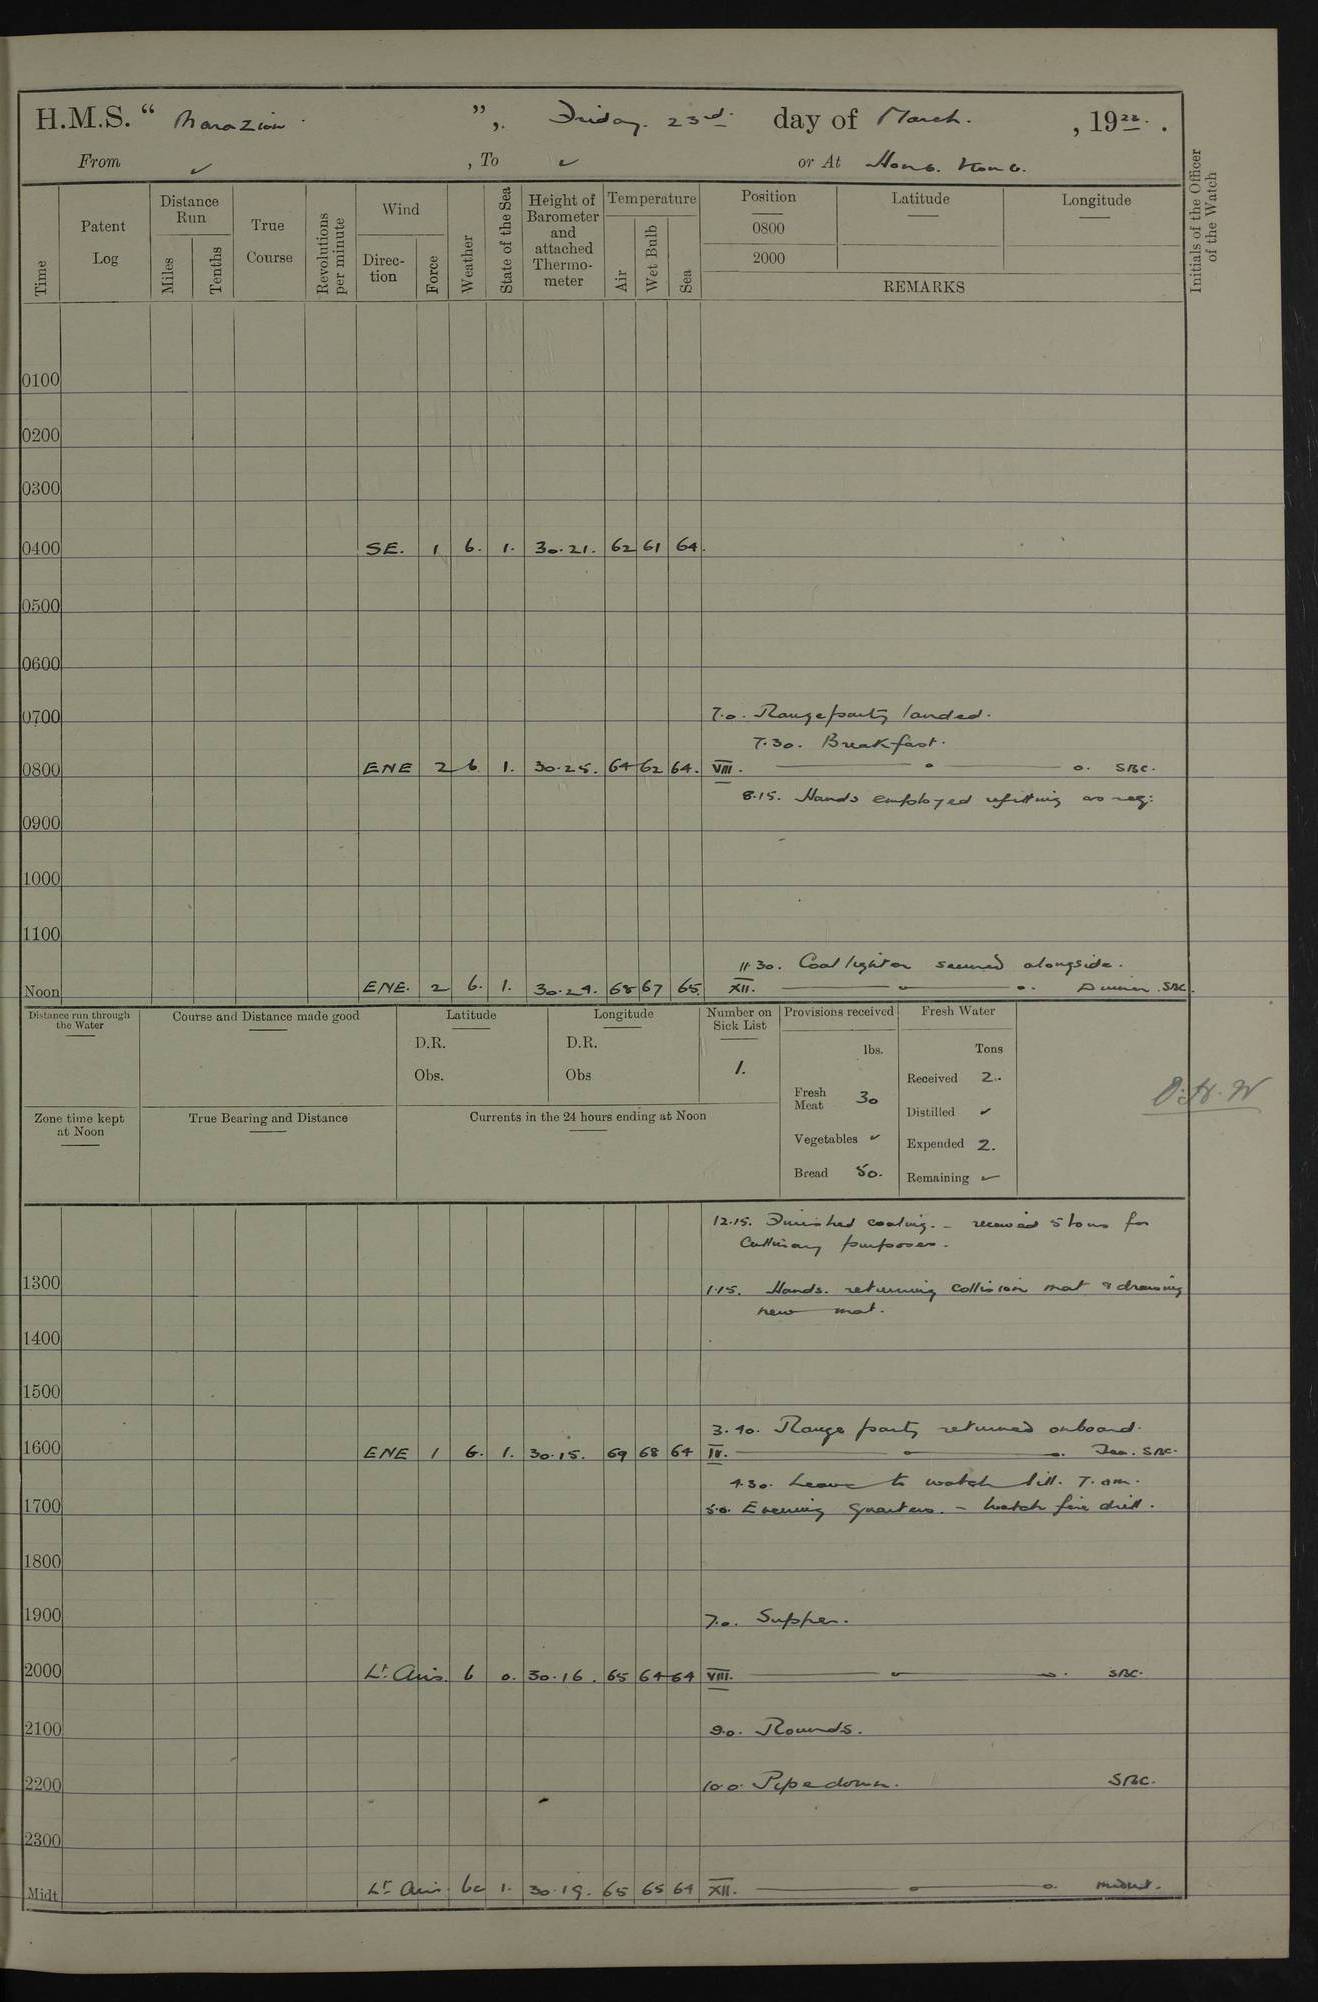 H.M.S. “ Marazion ”, Friday. 23rd. day of March. , 1928. .
From ✓ , To ✓ or At Hong Kong.
Time
Patent Log
Distance Run
Miles
Tenths
True Course
Revolutions per minute
Wind
Direction
Force
Weather
State of the Sea
Height of Barometer and attached Thermometer
Temperature
Air
Wet Bulb
Sea
Position
0800
2000
Latitude
Longitude
REMARKS
Initials of the Officer of the Watch
0100
0200
0300
0400 SE. 1 b. 1. 30.21. 62 61 64.
0500
0600
0700 7.0. Rangeparty landed.
7.30. Breakfast.
0800 ENE 2 b 1. 30.25. 64 62 64. VIII. SBC.
8.15. Hands employed refitting as req:
0900
1000
1100
11.30. Coal lighter secured alongside.
Noon ENE. 2 b. 1. 30.24. 68 67 65. XII. Dinner. SBC.
Distance run through the Water
Course and Distance made good
Latitude
D.R.
Obs.
Longitude
D.R.
Obs
Number on Sick List
1.
Provisions received
lbs.
Fresh Meat 30
Vegetables ✓
Bread 50.
Fresh Water
Tons
Received 2.
Distilled ✓
Expended 2.
Remaining ✓
Zone time kept at Noon
True Bearing and Distance
Currents in the 24 hours ending at Noon
12.15. Finished coaling. - received 5 tons for
Cullinary purposes.
1300 1.15. Hands. returning collision mat & drawing
new mat.
1400
1500
3.40. Range party returned onboard.
1600 ENE 1 b. 1. 30.15. 69 68 64 IV. Tea. SBC.
4.30. Leave to watch till. 7. am.
1700 5.0. Evening Quarters. - Watch fire drill.
1800
1900 7.0. Supper.
2000 Lt. Airs. b 0. 30.16. 65 64 64 VIII. SBC.
2100 9.0. Rounds.
2200 10.0. Pipe down. SBC.
2300
Midt Lt. Airs. bc 1. 30.19. 65 65 64 XII. midnt.